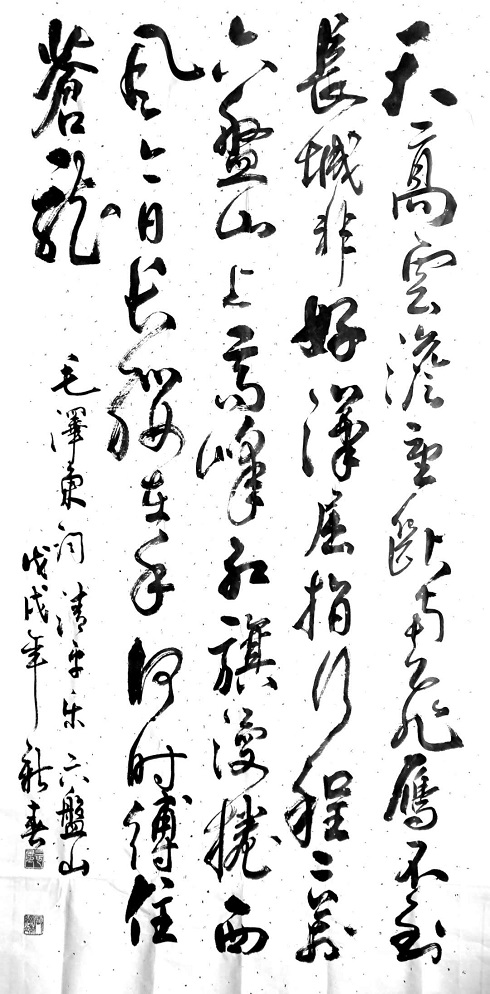 天高雲澹望斷南飛雁不到
長城非好漢屈指行程二萬
六盤山上高峰紅旗漫捲西
風今日長纓在手何時縛住
蒼龍
毛澤東詞清平樂六盤山
戊戌年新春